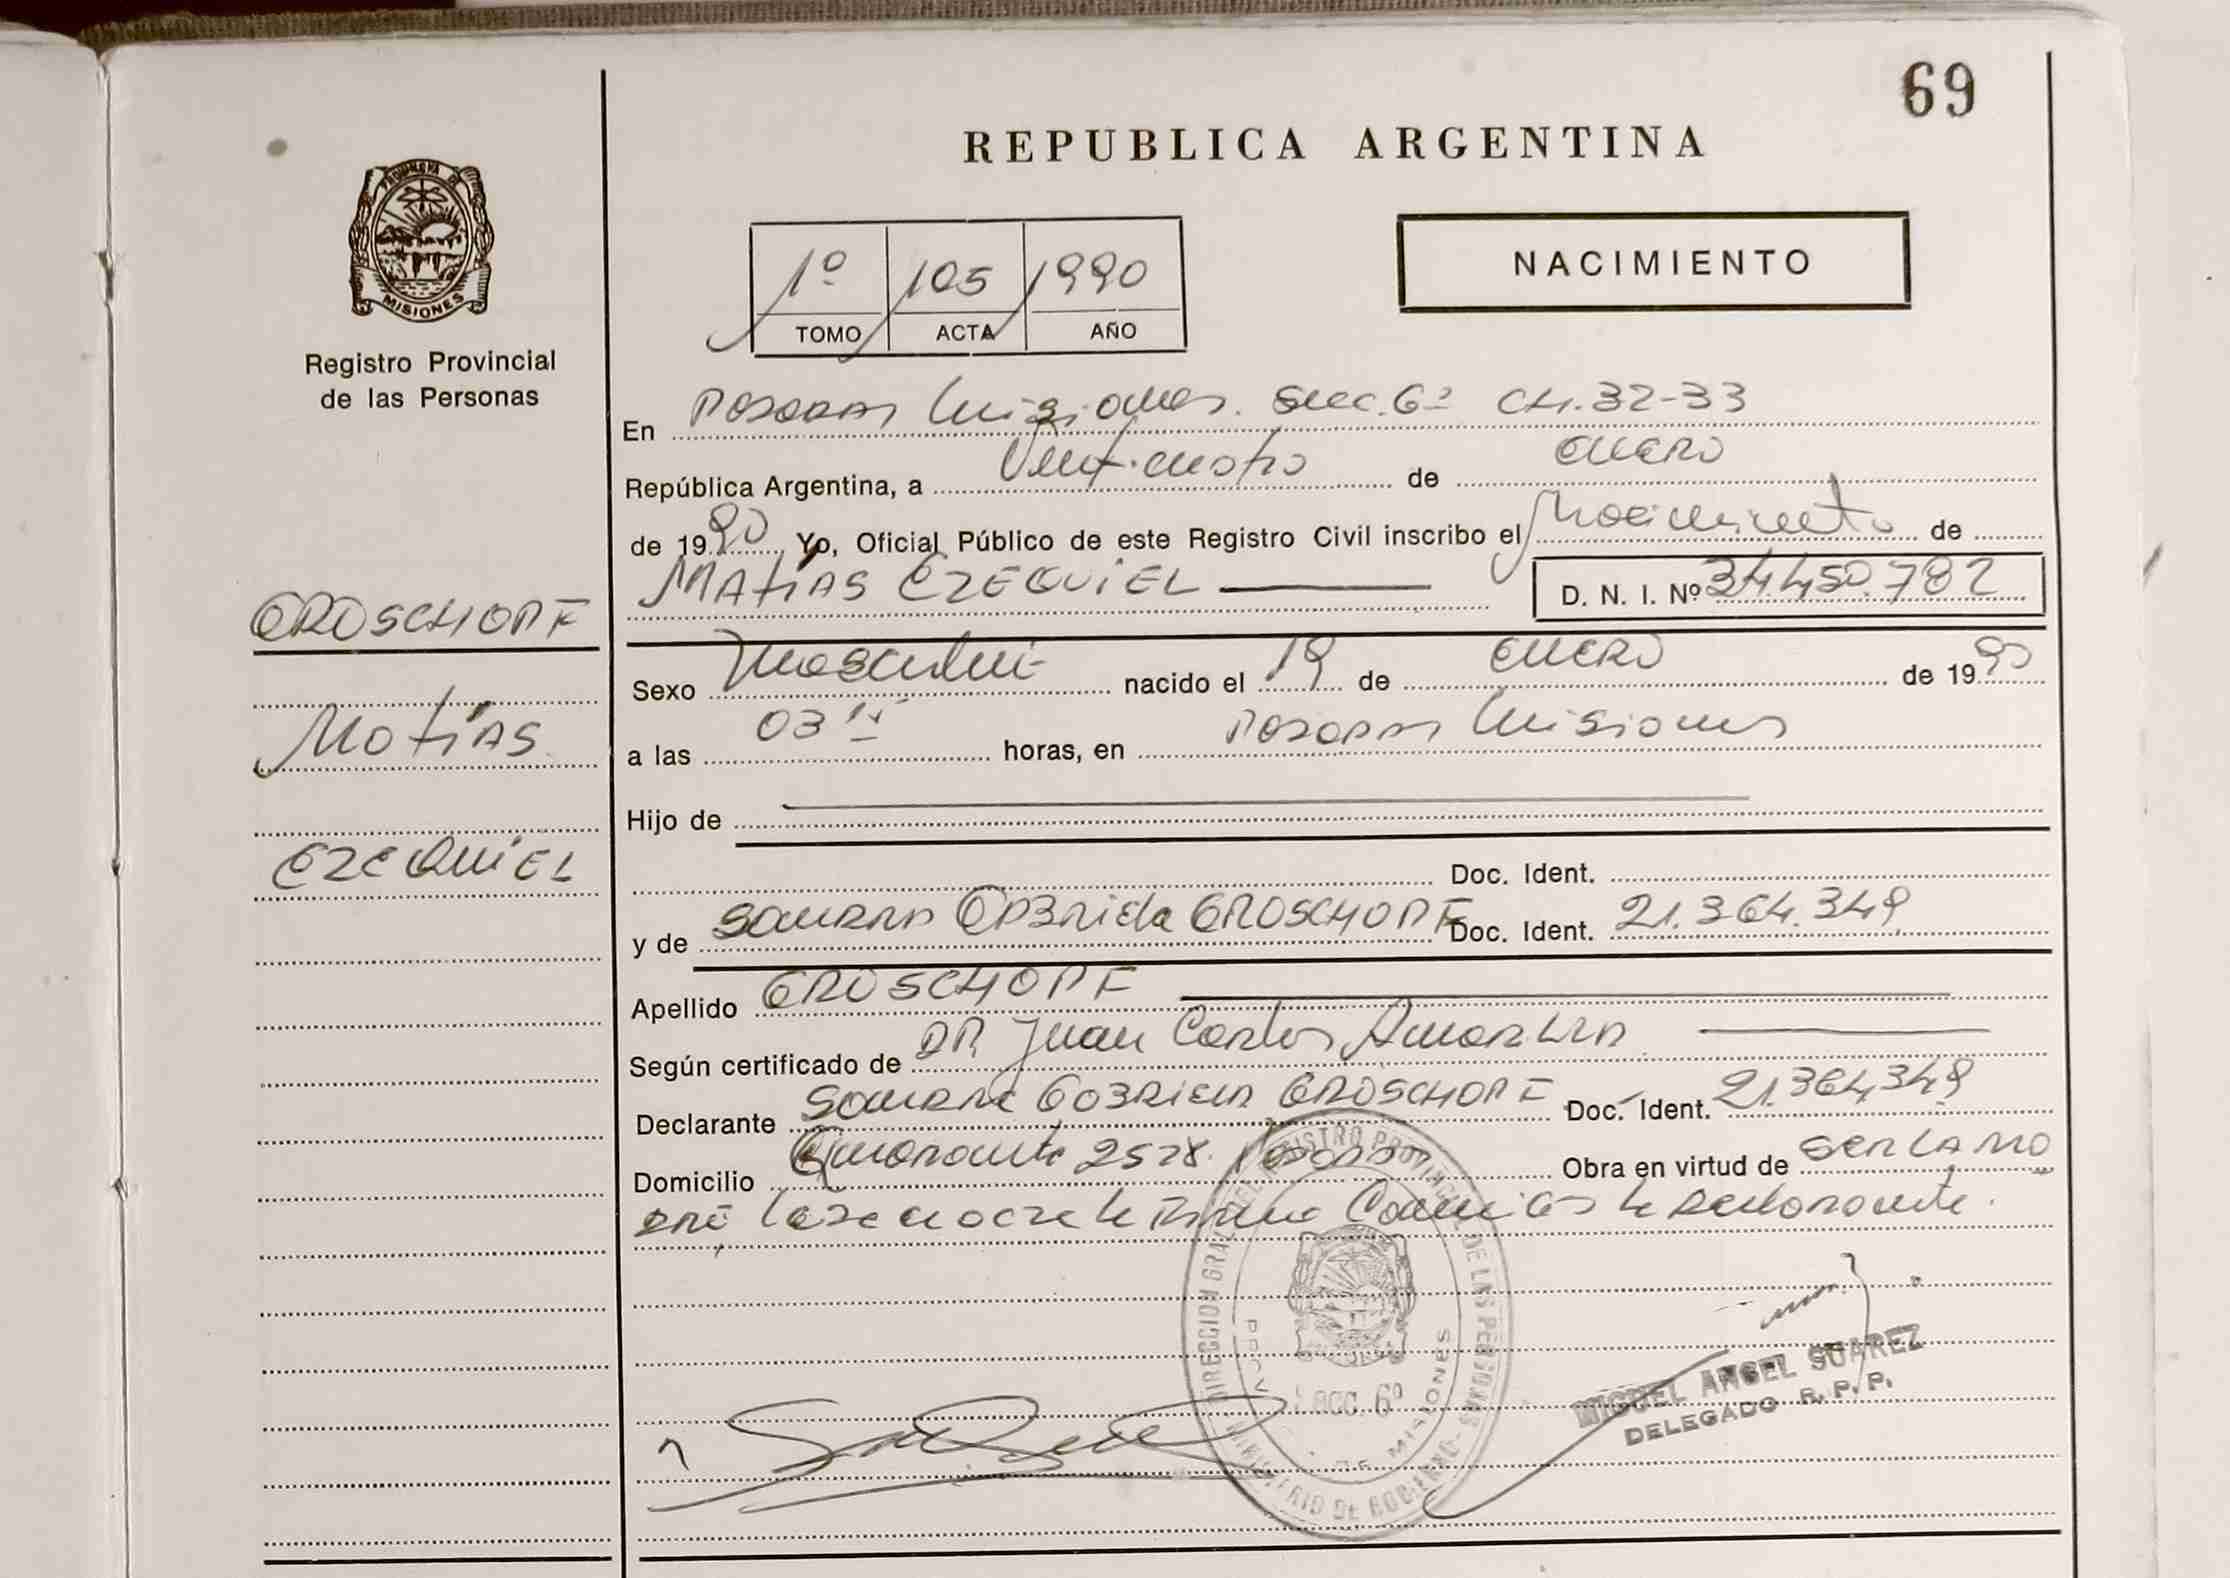 69
REPUBLICA ARGENTINA
PROVINCIA DE
MISIONES
Registro Provincial
de las Personas
NACIMIENTO
1º 105 1990
TOMO ACTA AÑO
En Posadas Misiones. Secc. 6ª CH. 32-33
República Argentina, a Veinticuatro de ENERO
de 1990 Yo, Oficial Público de este Registro Civil inscribo el Nacimiento de
MATIAS EZEQUIEL D. N. I. Nº 34.450.782
GROSCHOPF
Matías
EZEQUIEL
Sexo Masculino nacido el 19 de ENERO de 1990
a las 03 horas, en Posadas Misiones
Hijo de
Doc. Ident.
y de SANDRA GABRIELA GROSCHOPF Doc. Ident. 21.364.349
Apellido GROSCHOPF
Según certificado de DR. Juan Carlos
Declarante SANDRA GABRIELA GROSCHOPF Doc. Ident. 21.364.349
Domicilio 2528. Posadas Obra en virtud de SER LA MA
DRE de la declarante.
DIRECCION GRAL DEL REGISTRO PROVINCIAL DE LAS PERSONAS
MINISTERIO DE GOBIERNO
PROV. DE MISIONES
SECC. 6º
MIGUEL ANGEL SUAREZ
DELEGADO R. P. P.